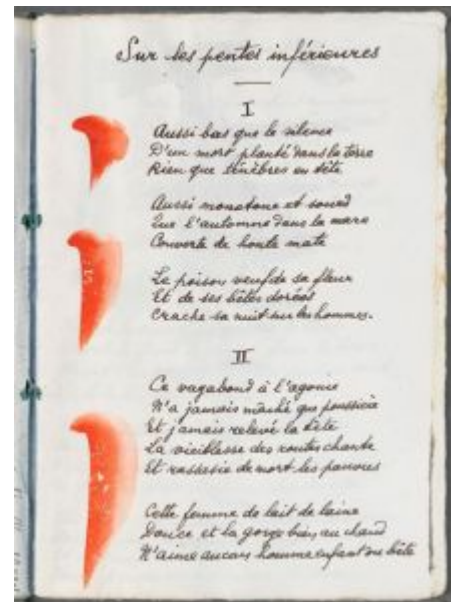 Sur les pentes inférieures
I
Aussi bas que le silence
D'un mort planté dans la terre
Rien que ténèbres en tête
Aussi monotone et sourd
Que l'automne dans la mare
Couverte de honte mate
Le poison veuf de sa fleur
Et de ses bêtes dorées
Crache sa nuit sur les hommes.
II
Ce vagabond à l'agonie
N'a jamais mâché que poussière
Et jamais relevé la tête
La vieillesse des routes chante
Et rassasie de mort les pauvres
Cette femme de lait de laine
Douce et la gorge bien au chaud
N'aime aucun homme enfant ou bête